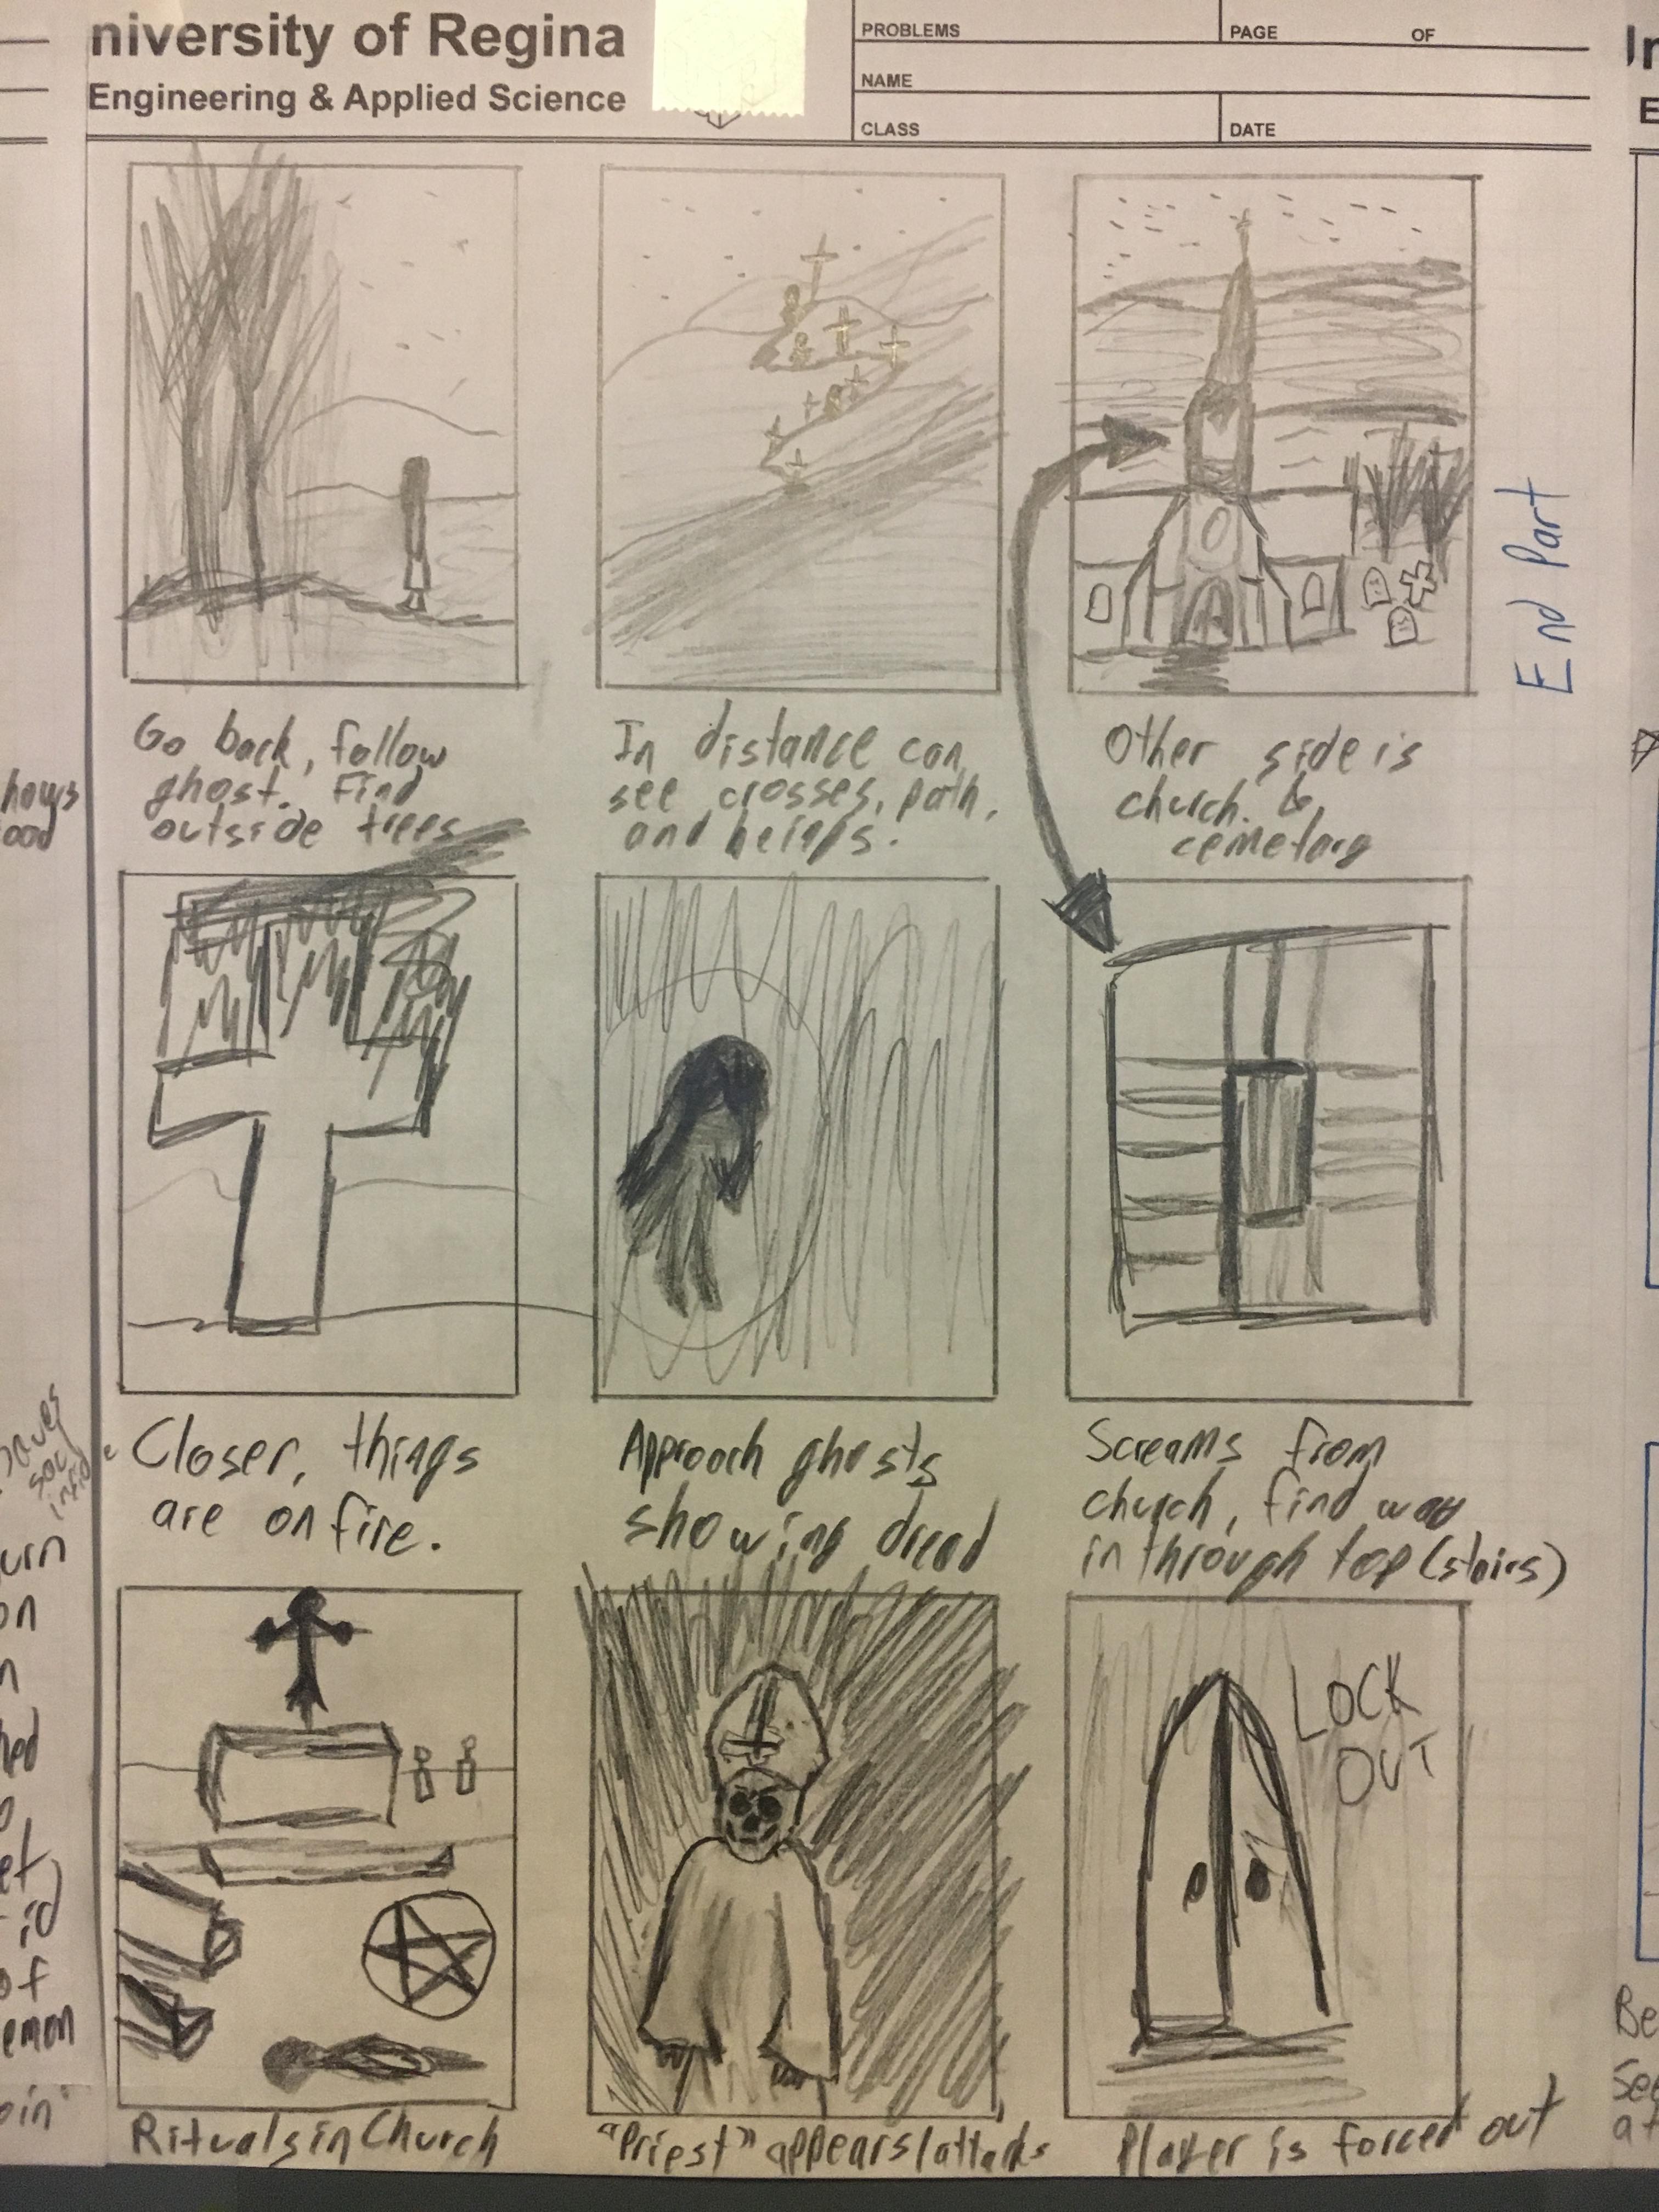 niversity of Regina
Engineering & Applied Science
PROBLEMS
PAGE OF
NAME
CLASS
DATE
Go back, follow
ghost. Find
outside trees
In distance can
see crosses, path,
and beings.
Other side is
church. &
cemetary
End Part
Closer, things
are on fire.
Approach ghosts
showing dread
Screams from
church, find way
in through top (stairs)
LOCK
OUT
Rituals in Church
"Priest" appears/attacks
Player is forced out
hows
ood
urn
on
n
hed
et
id
of
emon
oin
Be
See
at